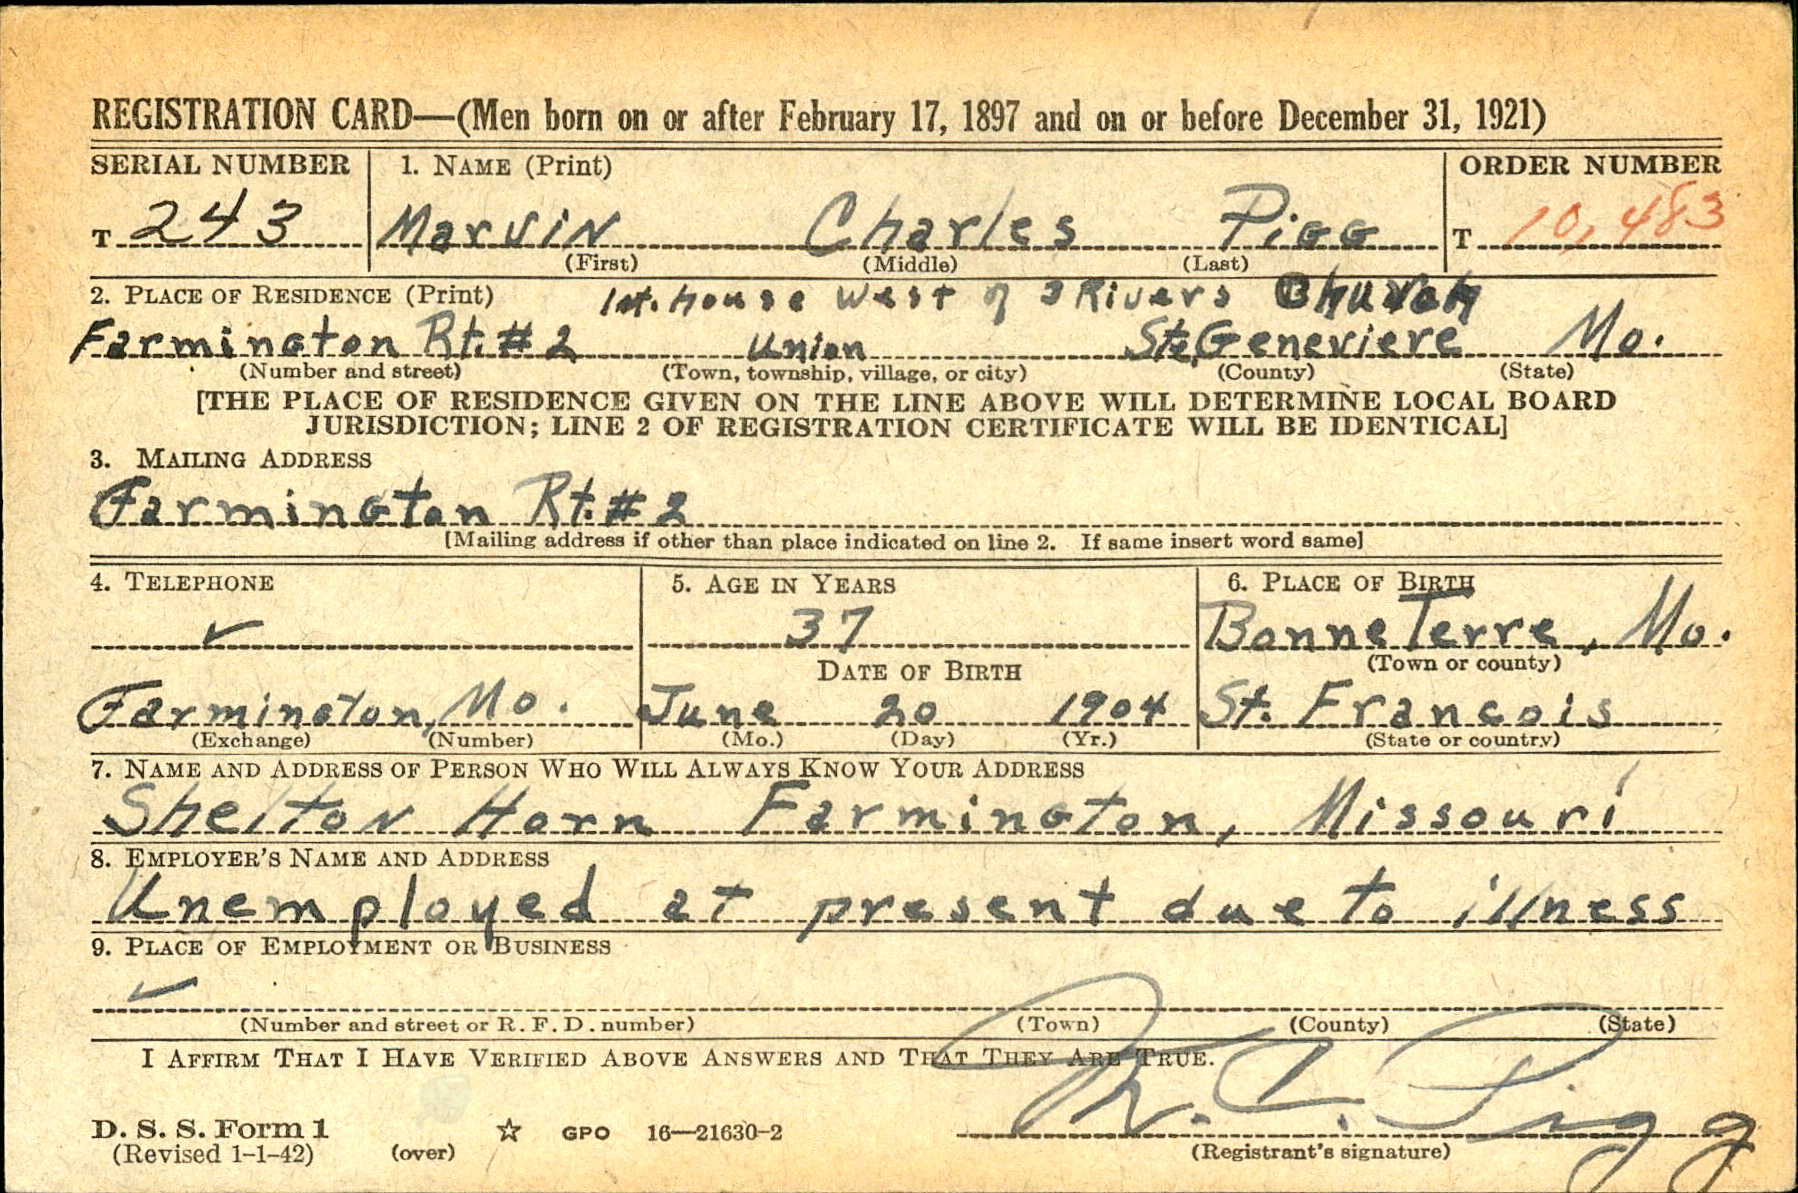 REGISTRATION CARD—(Men born on or after February 17, 1897 and on or before December 31, 1921)
SERIAL NUMBER 1. NAME (Print) ORDER NUMBER
T 243 Marvin Charles Pigg T 10,483
(First) (Middle) (Last)
2. PLACE OF RESIDENCE (Print) 1st. house west of 3 Rivers Church
Farmington Rt. #2 Union Ste. Geneviere Mo.
(Number and street) (Town, township, village, or city) (County) (State)
[THE PLACE OF RESIDENCE GIVEN ON THE LINE ABOVE WILL DETERMINE LOCAL BOARD
JURISDICTION; LINE 2 OF REGISTRATION CERTIFICATE WILL BE IDENTICAL]
3. MAILING ADDRESS
Farmington Rt. #2
[Mailing address if other than place indicated on line 2. If same insert word same]
4. TELEPHONE 5. AGE IN YEARS 6. PLACE OF BIRTH
37 Bonne Terre, Mo.
DATE OF BIRTH (Town or county)
Farmington, Mo. June 20 1904 St. Francois
(Exchange) (Number) (Mo.) (Day) (Yr.) (State or country)
7. NAME AND ADDRESS OF PERSON WHO WILL ALWAYS KNOW YOUR ADDRESS
Shelton Horn Farmington, Missouri
8. EMPLOYER'S NAME AND ADDRESS
Unemployed at present due to illness
9. PLACE OF EMPLOYMENT OR BUSINESS
(Number and street or R. F. D. number) (Town) (County) (State)
I AFFIRM THAT I HAVE VERIFIED ABOVE ANSWERS AND THAT THEY ARE TRUE.
M. C. Pigg
D. S. S. Form 1 GPO 16—21630-2
(Revised 1-1-42) (over) (Registrant's signature)